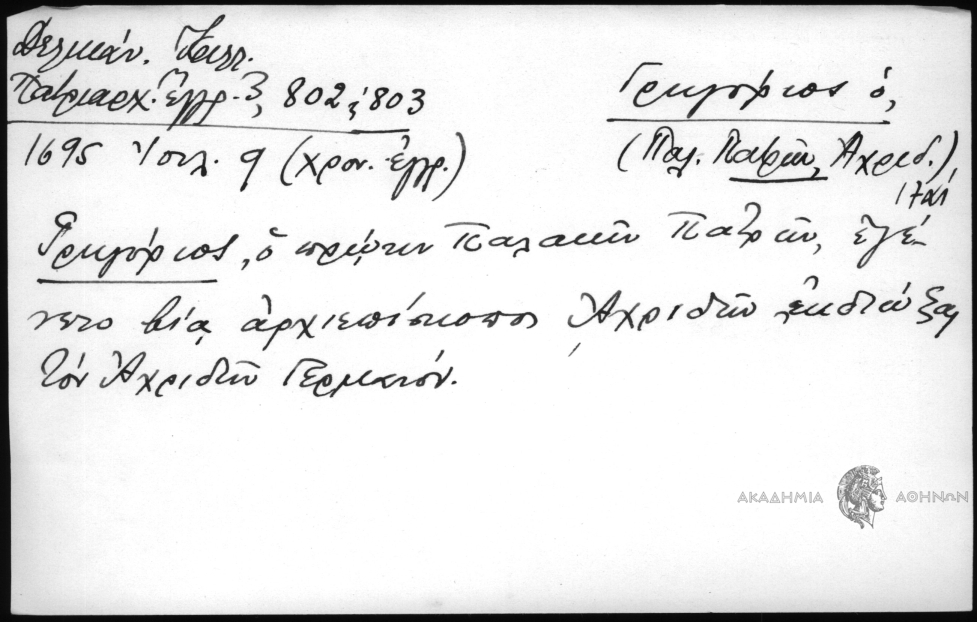 Δελικάν. Καλλ.
Πατριαρχ. Ἔγγρ. 3, 802 ἑ 803
1695 Ἰουλ. 9 (χρον. ἐγγρ.)
Γρηγόριος ὁ,
(Παλ. Πατρῶν, Ἀχριδ.)
17 αἰ
Γρηγόριος, ὁ πρῴην Παλαιῶν Πατρῶν, ἐγέ-
νετο βίᾳ ἀρχιεπίσκοπος Ἀχριδῶν ἐκδιώξας
τὸν Ἀχριδῶν Γερμανόν.
ΑΚΑΔΗΜΙΑ ΑΘΗΝΩΝ